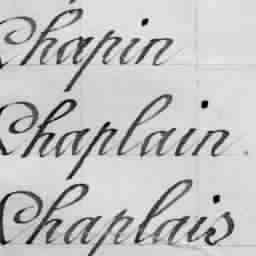 Chapin
Chaplain.
Chaplais